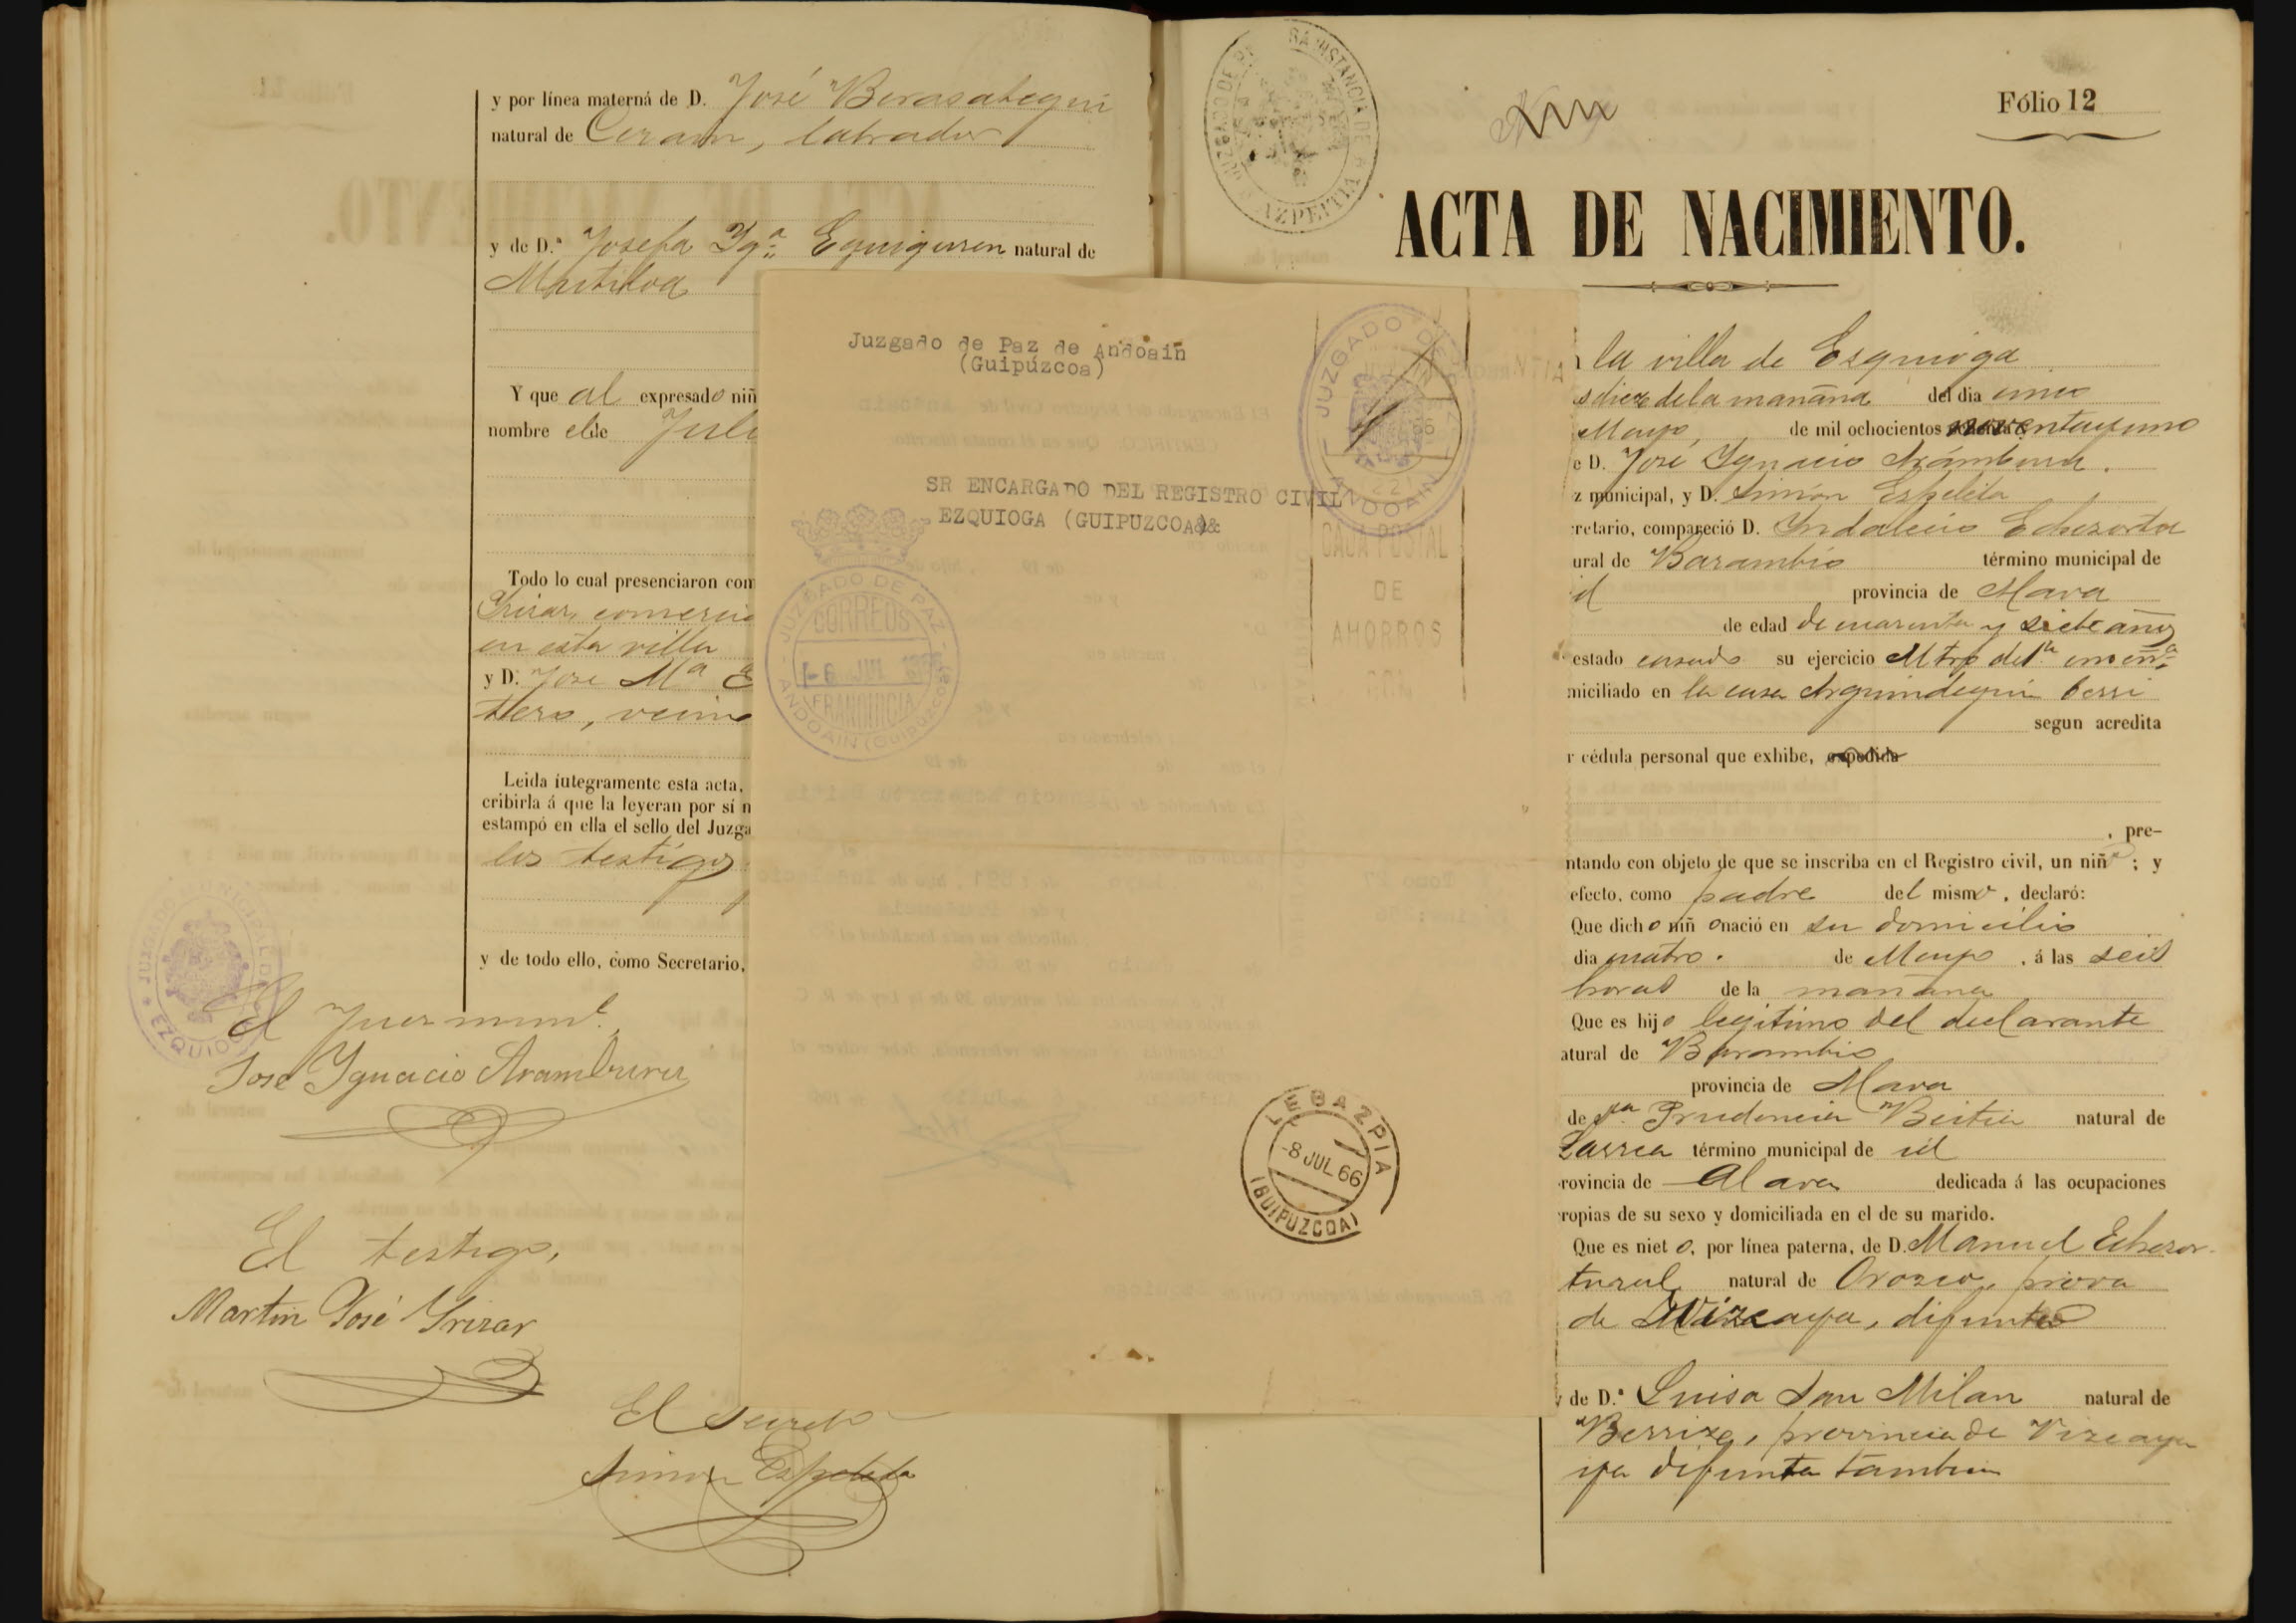 y por línea materna de D. José Berasategui
natural de Cerain, labrador
y de D.ª Josefa Ygª Eguiguren natural de
Mutiloa
Y que al expresado niñ
nombre el de Juli
Todo lo cual presenciaron com
Yrizar, comercia
en esta villa
y D. Jose Mª E
tero, vecino
Leida integramente esta acta,
cribirla á que la leyeran por sí m
estampó en ella el sello del Juzga
los testigos
y de todo ello, como Secretario,
JUZGADO MUNICIPAL DE
EZQUIOGA
El Juez munl.
José Ygnacio Aramburu
El testigo,
Martin José Yrizar
El secreto
Simon Espeleta
Juzgado de Paz de Andoain
(Guipúzcoa)
JUZGADO DE
ANDOAIN
SR ENCARGADO DEL REGISTRO CIVIL
EZQUIOGA (GUIPUZCOA)&&
JUZGADO DE PAZ
CORREOS
-6 JUL 1966
FRANQUICIA
ANDOAIN (Guipúzcoa)
CAJA POSTAL
DE
AHORROS
LEGAZPIA
-8 JUL 66
(GUIPUZCOA)
Fólio 12
AZPEITIA
ACTA DE NACIMIENTO.
la villa de Ezquioga
s diez de la mañana del dia cinco
Mayo, de mil ochocientos noventa y uno
e D. José Ygnacio Arámburu.
z municipal, y D. Simón Espeleta
cretario, compareció D. Yndalecio Echezortu
ural de Barambio término municipal de
id provincia de Alava
de edad de cuarenta y siete años
estado casado su ejercicio Mtro de 1ª enseñª
miciliado en la casa Arguindegui berri
segun acredita
r cédula personal que exhibe, expedida
, pre-
ntando con objeto de que se inscriba en el Registro civil, un niño; y
efecto, como padre del mismo, declaró:
Que dicho niño nació en su domicilio
dia cuatro. de Mayo, á las seis
horas de la mañana
Que es hijo legitimo del declarante
atural de Barambio
provincia de Alava
de Dª Prudencia Beitia natural de
Larrea término municipal de id
rovincia de Alava dedicada á las ocupaciones
ropias de su sexo y domiciliada en el de su marido.
Que es nieto, por línea paterna, de D. Manuel Echezor-
tu natural de Orozco, prova
de Vizcaya, difunto
y de D.ª Luisa San Milan natural de
Berriz, provincia de Vizcaya
ya difunta tambien